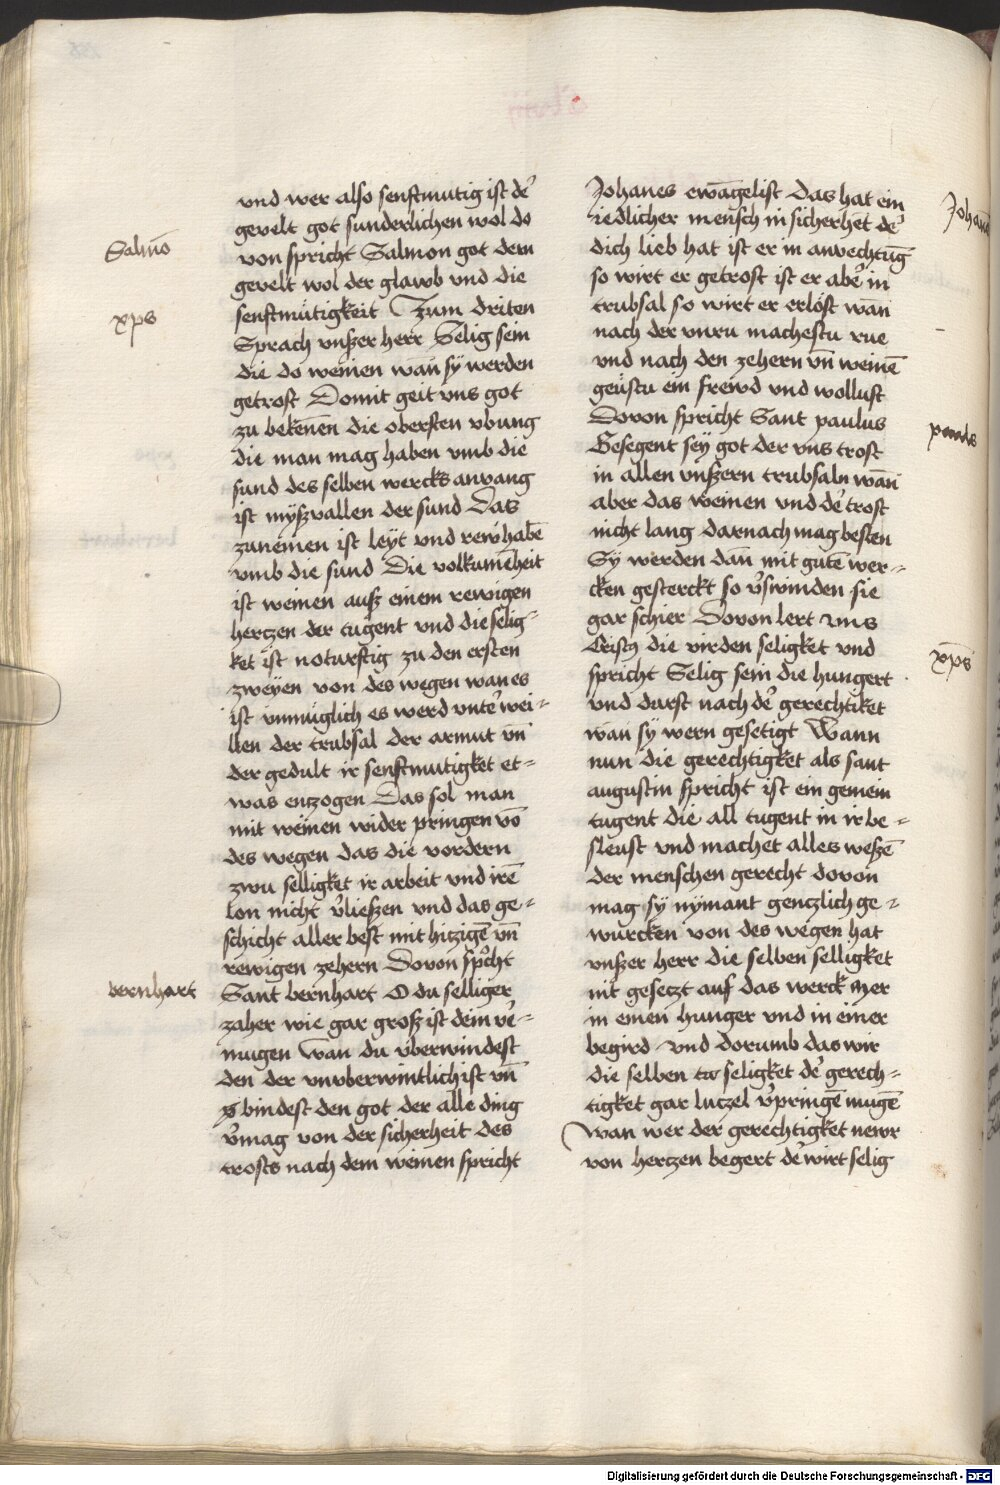 und wer also senftmutig ist de᷑
gevelt got sunderlichen wol do
von spricht Salmon got dem
gevelt wol der glawb vnd die
senftmütigkeit Zum driten
Sprach vnßer herr Selig sein
die do weinen wan̄ sy werden
getrost Domit geit vns got
zu beken̄en die obersten vbung
die man mag haben vmb die
sund des selben wercks anvang
ist myßvallen der sund Das
zunemen ist leyt vnd rew habē
vmb die sund Die volkumēheit
ist weinen auß einem rewigen
hertzen der tugent vnd die selig-
ket ist noturftig zu den ersten
zweyen von des wegen wan es
ist vnmüglich es werd vnte᷑ wei-
llen der trubsal der armut vn̄
der gedult ir senftmutigket et-
was entzogen Das sol man
mit weinen wider pringen vō
des wegen das die vordern
zwu selligket ir arbeit vnd irē
lon nicht v᷑ließen vnd das ge-
schicht aller best mit hitzigē vn̄
rewigen zehern Dovon sp᷑cht
Sant bernhart O du selliger
zaher wie gar groß ist dein ve᷑-
mugen wan du vberwindest
den der vnvberwintlich ist vn̄
bindest den got der alle ding
v᷑mag von der sicherheit des
trosts nach dem weinen spricht
Salmō
xp̄s
bernhart
Johanes ewāgelist das hat ein
iedlicher mensch in sicherhet de᷑
dich lieb hat ist er in anvechtūg
so wirt er getrost ist er abe᷑ in
trubsal so wirt er erlöst wān
nach der vnru machestu rue
vnd nach den zehern vn̄ weinē
geüstu ein frewd vnd wollust
Dovon spricht Sant paulus
Gesegent sey got der vns trost
in allen vnßern trubsaln wān
aber das weinen vnd de᷑ trost
nicht lang darnach mag besten
Sy werden dan̄ mit gutē wer-
cken gesterckt so v᷑swinden sie
gar schier Dovon lert vns
Cristus die virden seligket vnd
spricht Selig sein die hungert
vnd durst nach de᷑ gerechtiket
wan sy wern gesetigt Wann
nun die gerechtigket als sant
augustin spricht ist ein gemein
tugent die all tugent in ir be-
sleust vnd machet alles weßē
der menschen gerecht dovon
mag sy nymant gentzlich ge-
wurcken von des wegen hat
vnßer herr die selben selligket
nit gesetzt auf das werck Mer
in einen hunger vnd in einer
begird vnd dorumb das wir
die selben seligket de᷑ gerech-
tigket gar lutzel v᷑pringē mugē
wan wer der gerechtigket newr
von hertzen begert de᷑ wirt selig
Johan̄
paulus
xp̄s
Digitalisierung gefördert durch die Deutsche Forschungsgemeinschaft - DFG